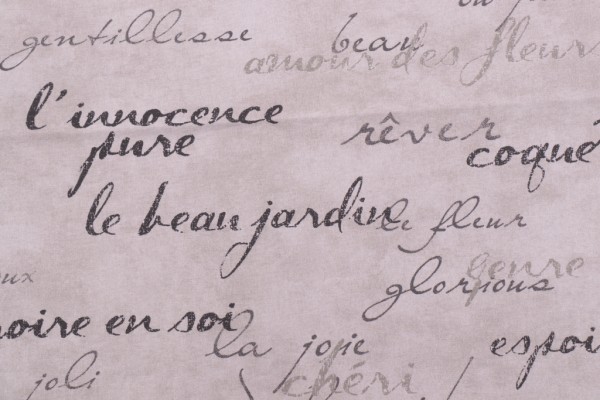 gentillesse beau
amour des fleurs
l'innocence
pure rêver
coqué
le beau jardin de fleur
genre
glorious
oire en soi
la joie espoi
joli chéri